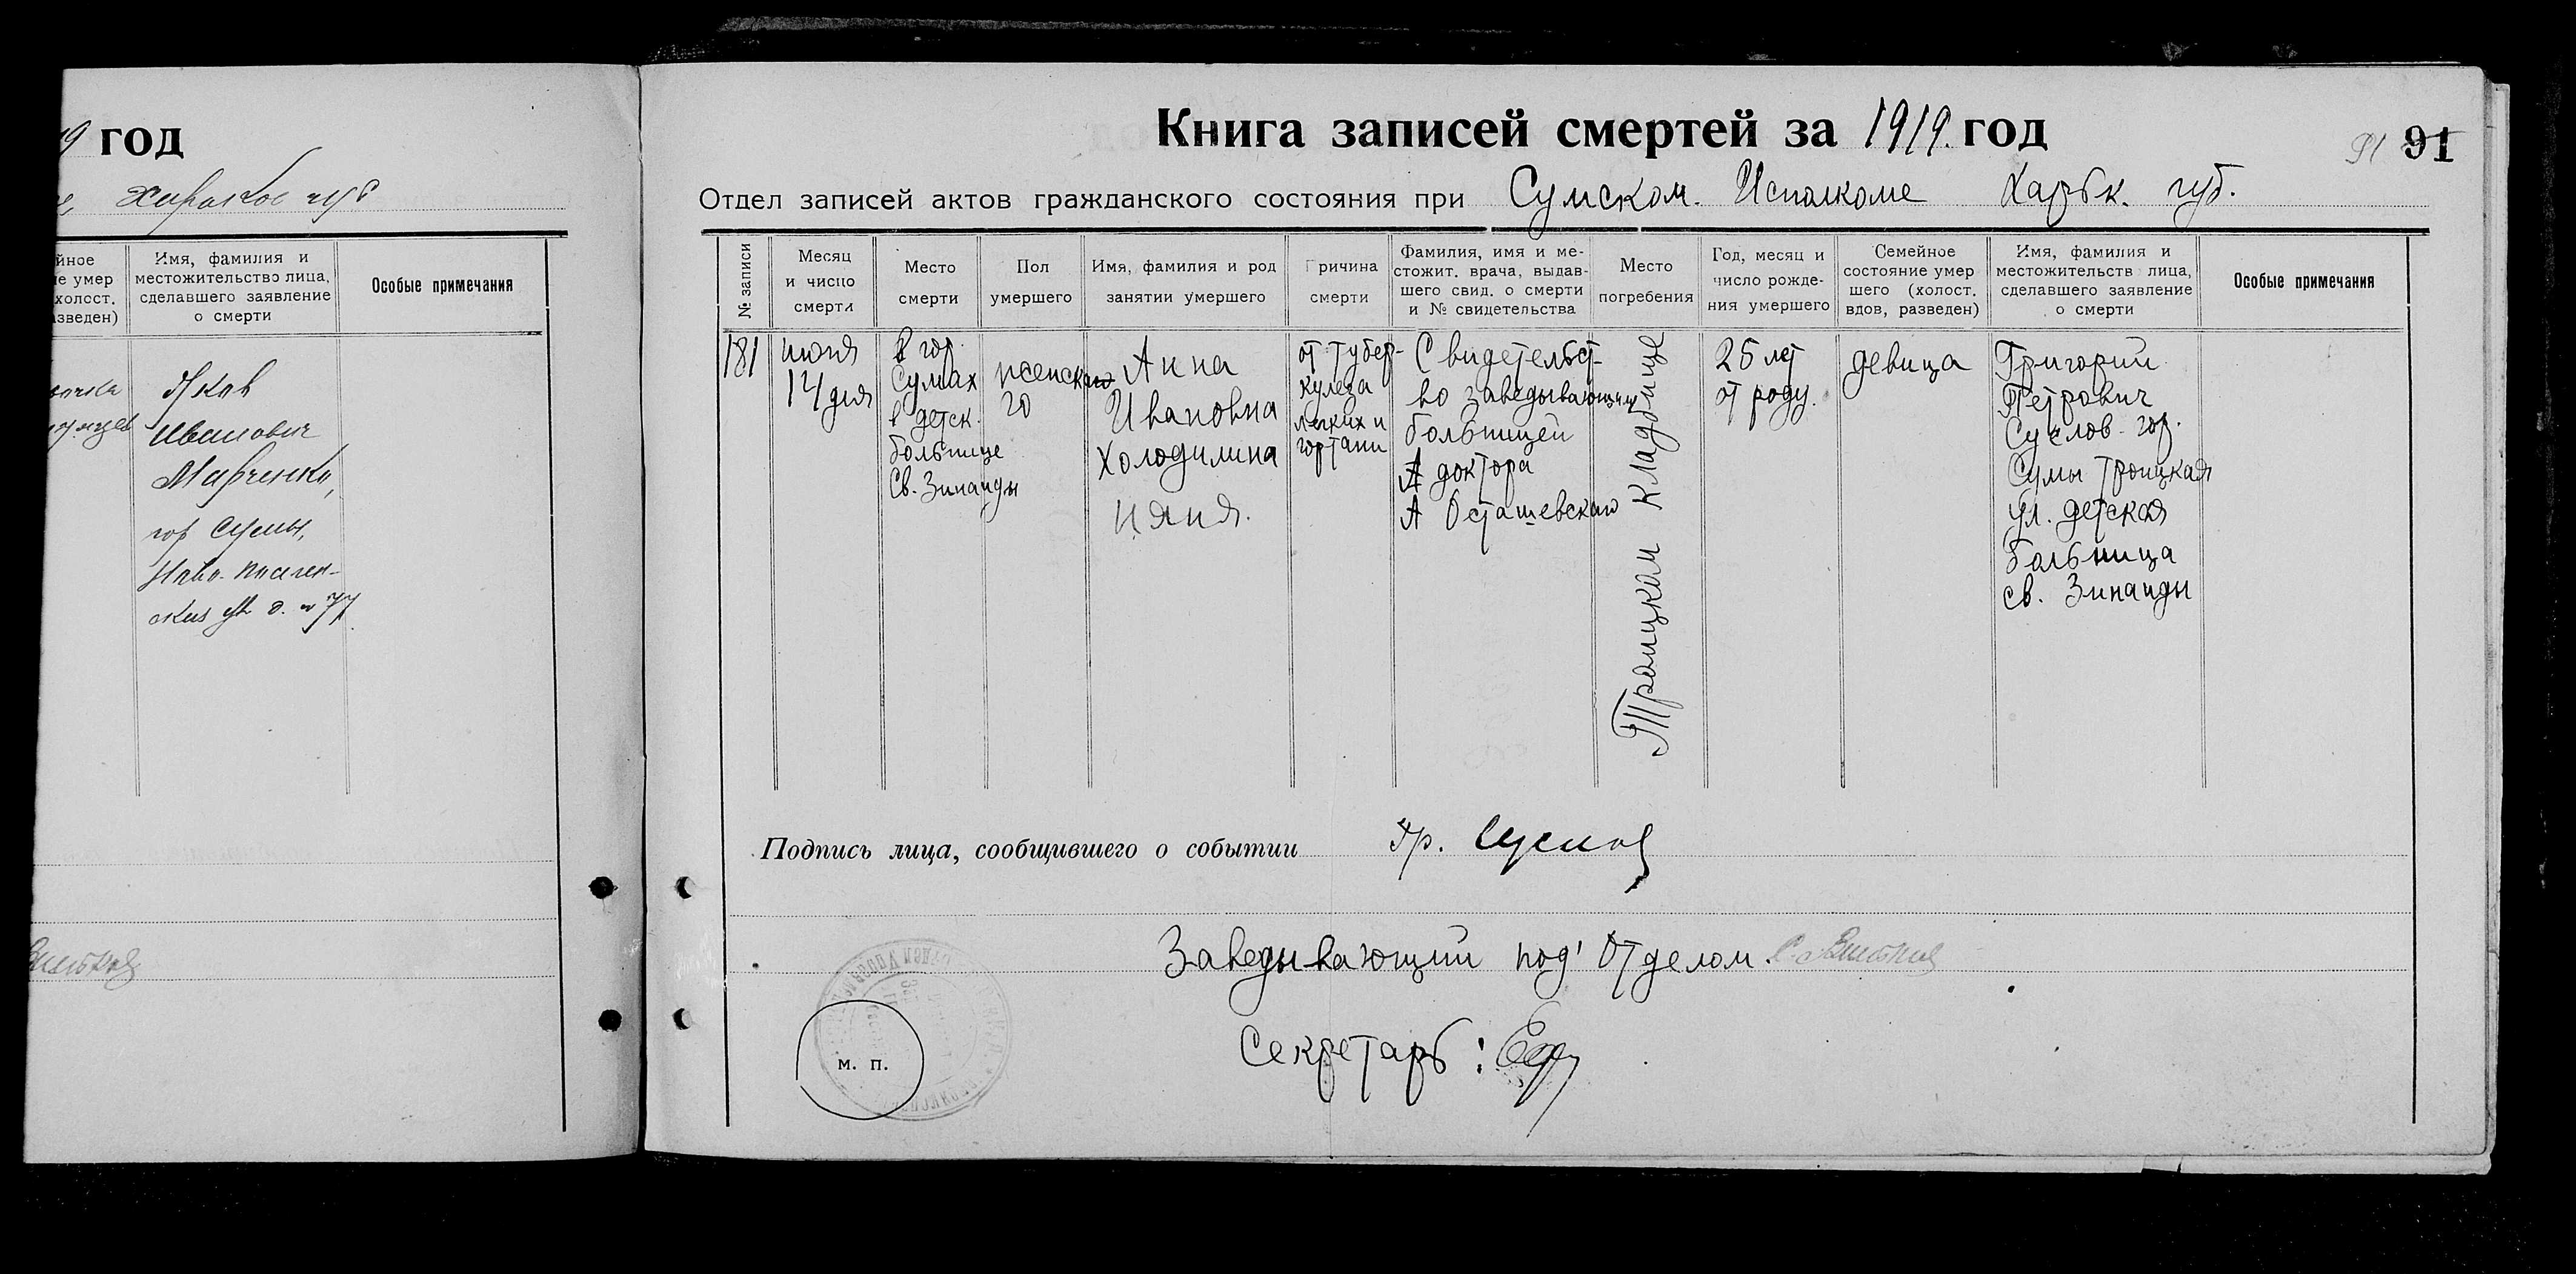 год
Имя, фамилия и
местожительство лица,
сделавшего заявление
о смерти
Особые примечания
йное
е умер
холост.
азведен)
Иванович
гор Сумы,
д. № 77
Книга записей смертей за 1919. год
91 91
Отдел записей актов гражданского состояния при Сумском. Исполкоме Харьк. губ.
№ записи
Месяц
и число
смерти
Место
смерти
Пол
умершего
Имя, фамилия и род
занятии умершего
Причина
смерти
Фамилия, имя и ме-
стожит. врача, выдав-
шего свид. о смерти
и № свидетельства
Место
погребения
Год, месяц и
число рожде-
ния умершего
Семейное
состояние умер
шего (холост.
вдов, разведен)
Имя, фамилия и
местожительств лица,
сделавшего заявление
о смерти
Особые примечания
181
июня
14 дня
в гор.
Сумах
в детск.
больнице
Св. Зинаиды
женска
го
Анна
Ивановна
Холодилина
няня.
от тубер-
кулеза
легких и
гортани
Свидетельст-
во заведывающ
больницей
доктора
А Осташевскаго
Троицком Кладбище
25 лет
от роду.
девица
Григорий
Петрович
Суслов гор.
Сумы Троицкая
ул. детская
больница
св. Зинаиды
Подпись лица, сообщившего о событии Гр. Суслов
Заведывающий под' Отделом.
Секретарь:
м. п.